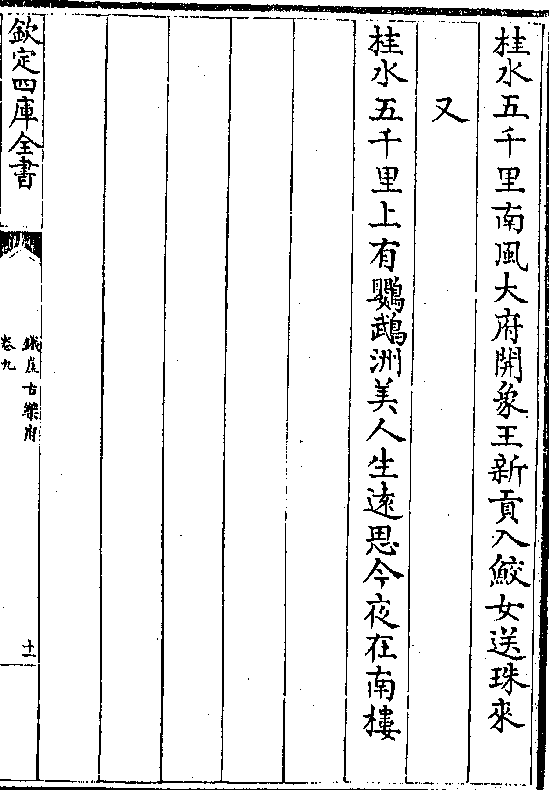 桂水五千里南風大府開象王新貢入鮫女送珠來
又
桂水五千里上有鸚鵡洲美人生遠思今夜在南樓
欽定四庫全書
鐵崖古樂府
卷九
十一